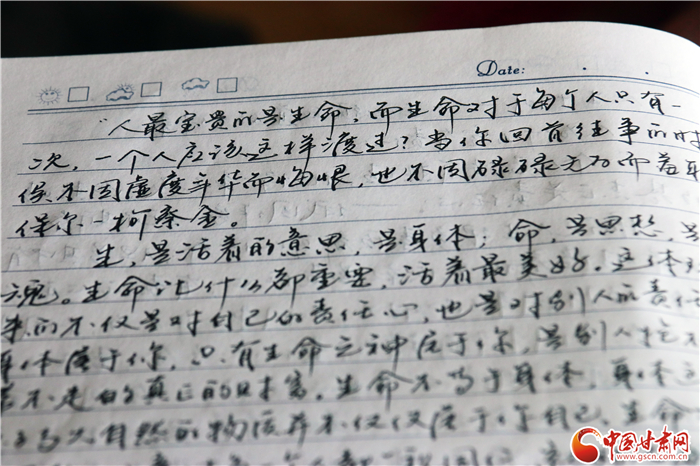 Date:
"人最宝贵的是生命,而生命对于每个人只有一
次,一个人应该这样渡过?当你回首往事的时
候不因虚度年华而悔恨,也不因碌碌无为而羞耻
保尔一柯察金。
生,是活着的意思,是身体;命,是思想,是
魂。生命比什么都重要,活着最美好。这体
的不仅是对自己的责任心,也是对别人的责任
体属于你,只有生命之神属于你,是别人
不走的真正的财富。生命不等于身体,身体
大自然的物质并不仅仅属于你自己,生命
中国甘肃网
www.gscn.com.cn